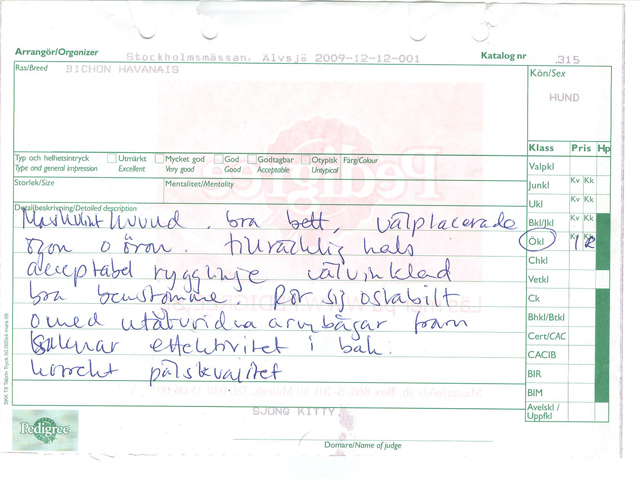 Arrangör/Organizer Stockholmsmässan, Älvsjö 2009-12-12-001 Katalog nr 315
Ras/Breed BICHON HAVANAIS Kön/Sex
HUND
Klass Pris Hp
Typ och helhetsintryck Utmärkt Mycket god God Godtagbar Otypisk Färg/Colour
Type and general impression Excellent Very good Good Acceptable Untypical
Valpkl
Storlek/Size Mentalitet/Mentality Junkl Kv Kk
Ukl Kv Kk
Detaljbeskrivning/Detailed description
Maskulint huvud. bra bett, välplacerade Bkl/Jkl Kv Kk
ögon o öron. tillräcklig hals Ökl 1 2
acceptabel rygglinje välvinklad Chkl
Vetkl
bra benstomme. Rör sig ostabilt Ck
o med utåtvridna armbågar fram Bhkl/Btkl
Saknar effektivitet i bak. Cert/CAC
CACIB
korrekt pälskvalitet BIR
BIM
SJUNG KITTY Avelskl /
Uppfkl
Pedigree
Domare/Name of judge